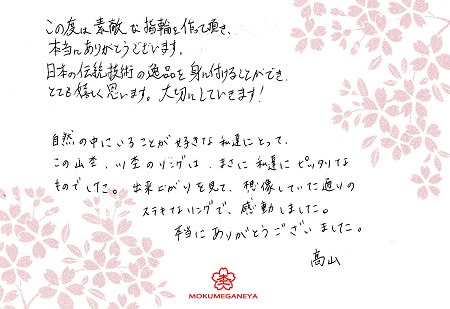 この度は素敵な指輪を作って頂き、
本当にありがとうございます。
日本の伝統技術の逸品を身に付けることができ、
とても嬉しく思います。大切にしていきます!
自然の中にいることが好きな私達にとって、
この山杢、川杢のリングは、まさに私達にピッタリな
ものでした。出来上がりを見て、想像していた通りの
ステキなリングで、感動しました。
本当にありがとうございました。
高山
MOKUMEGANEYA